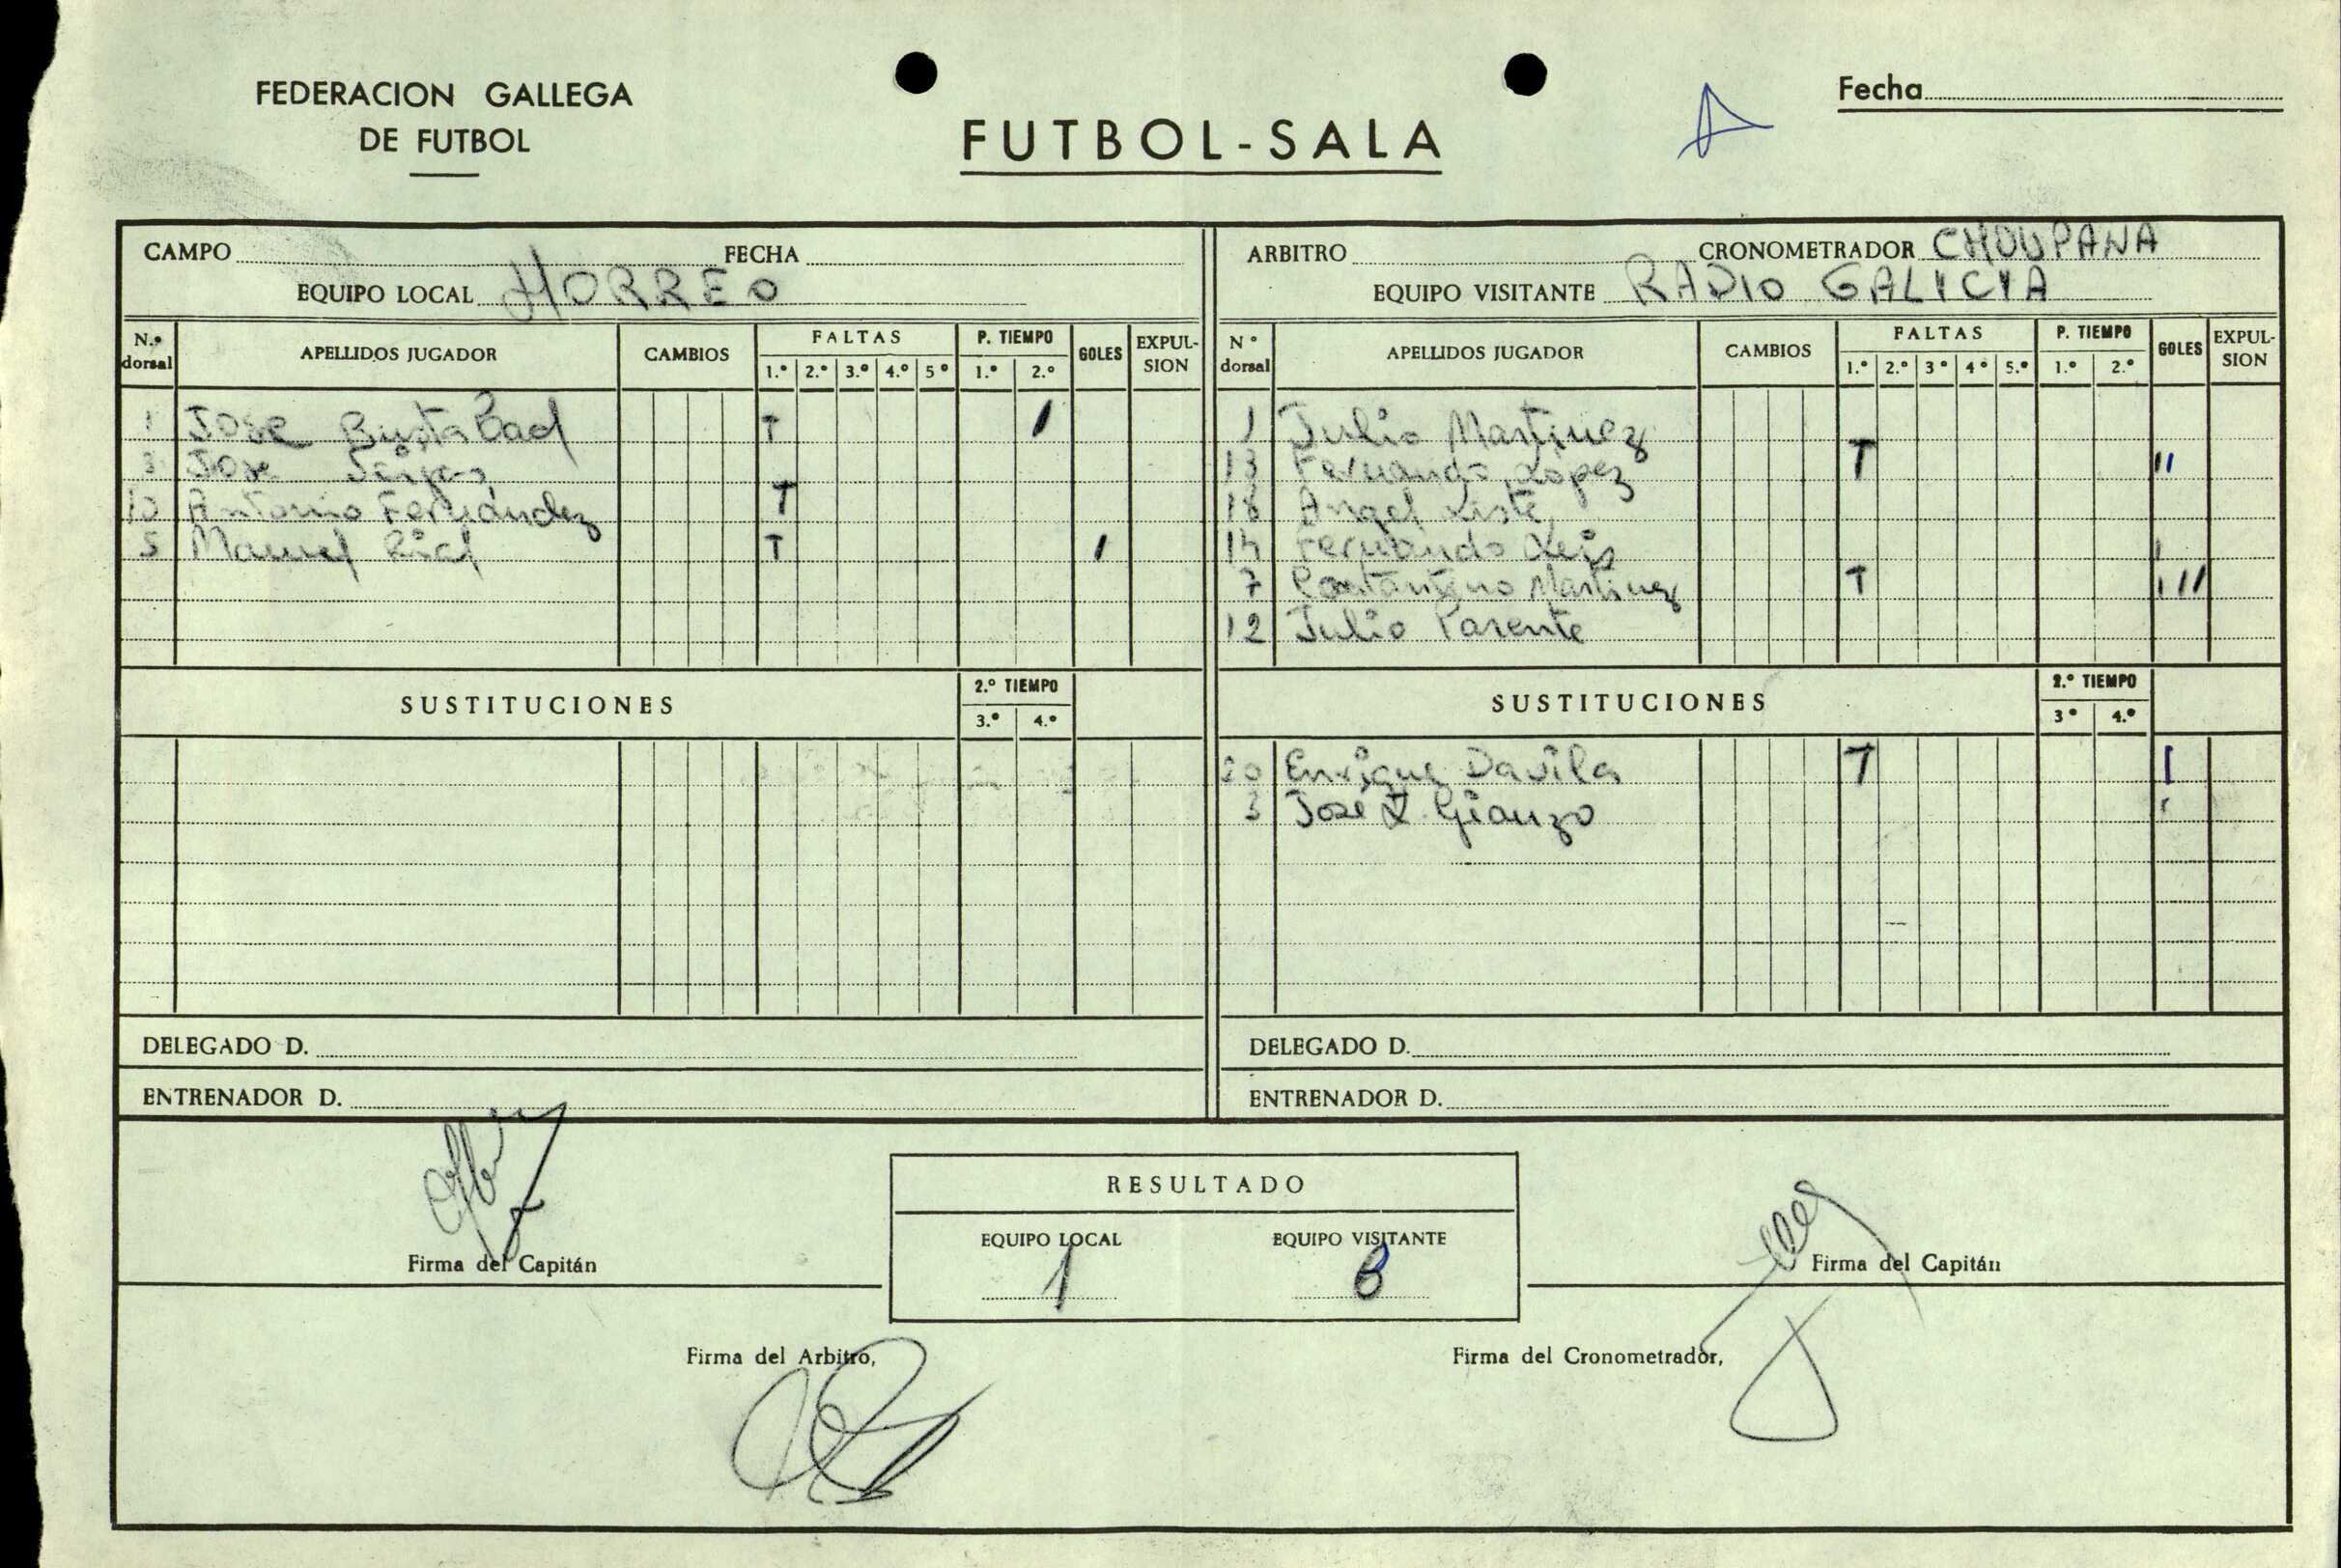 FEDERACION GALLEGA
DE FUTBOL
FUTBOL-SALA
Fecha
CAMPO FECHA
EQUIPO LOCAL HORREO
N.º dorsal APELLIDOS JUGADOR CAMBIOS FALTAS P. TIEMPO GOLES EXPULSION
1.º 2.º 3.º 4.º 5º 1.º 2.º
1 Jose Bustabad T I
3 Jose Seijas
10 Antonio Fernández T
5 Manuel Rial T I
SUSTITUCIONES 2.º TIEMPO
3.º 4.º
DELEGADO D.
ENTRENADOR D.
ARBITRO CRONOMETRADOR CHOUPANA
EQUIPO VISITANTE RADIO GALICIA
Nº dorsal APELLIDOS JUGADOR CAMBIOS FALTAS P. TIEMPO GOLES EXPULSION
1.º 2.º 3º 4º 5.º 1.º 2.º
1 Julio Martinez
13 Fernando Lopez T II
18 Angel Liste
14 Fernando Leis I
7 Constantino Martinez T III
12 Julio Parente
SUSTITUCIONES 2.º TIEMPO
3º 4.º
20 Enrique Davila T I
3 José Gianzo I
DELEGADO D.
ENTRENADOR D.
Firma del Capitán
RESULTADO
EQUIPO LOCAL EQUIPO VISITANTE
1 8
Firma del Capitán
Firma del Arbitro,
Firma del Cronometrador,